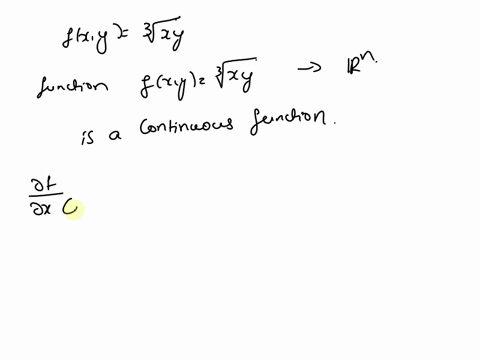 f(x,y) = ∛xy
function f(xy) = ∛xy → ℝⁿ.
is a continuous function.
∂f/∂x (